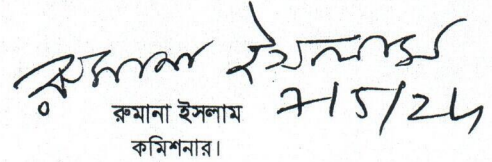 রুমানা ইসলাম
৭/৫/২৪
রুমানা ইসলাম
কমিশনার।